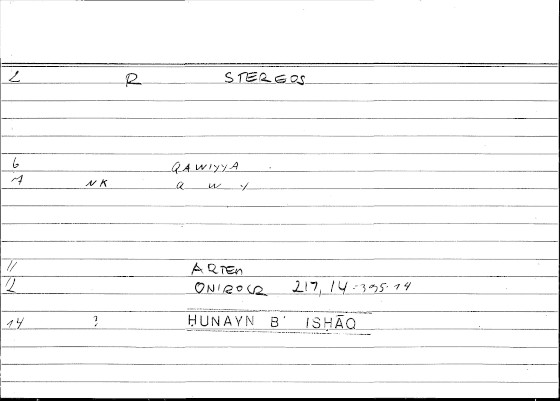 2 R STEREOS
6 QAWIYYA
7 NK Q W Y
11 ARTEM
12 ONIROCR 217,14=395.14
14 ? ḤUNAYN B' ISḤĀQ